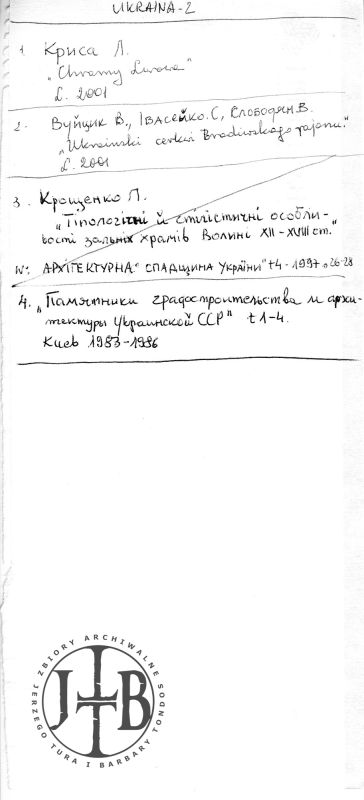 UKRAINA-2
1. Криса Л.
"Chramy Lwowa"
L. 2001
2. Вуйцик В., Івасейко.С, Слободян.В.
"Ukrainski cerkvi Brodiwskogo rajonu."
L. 2001
3. Крощенко Л.
"Типологічні й стилістичні особли-
вості зальних храмів Волині XII-XVIII ст."
W: АРХІТЕКТУРНА СПАДЩИНА УКРАЇНИ" t4 - 1997, s 26-28
4. "Памятники градостроительства и архи-
тектуры Украинской ССР" t 1-4.
Киев 1983-1986
ZBIORY ARCHIWALNE
JERZEGO TURA I BARBARY TONDOS
JTB